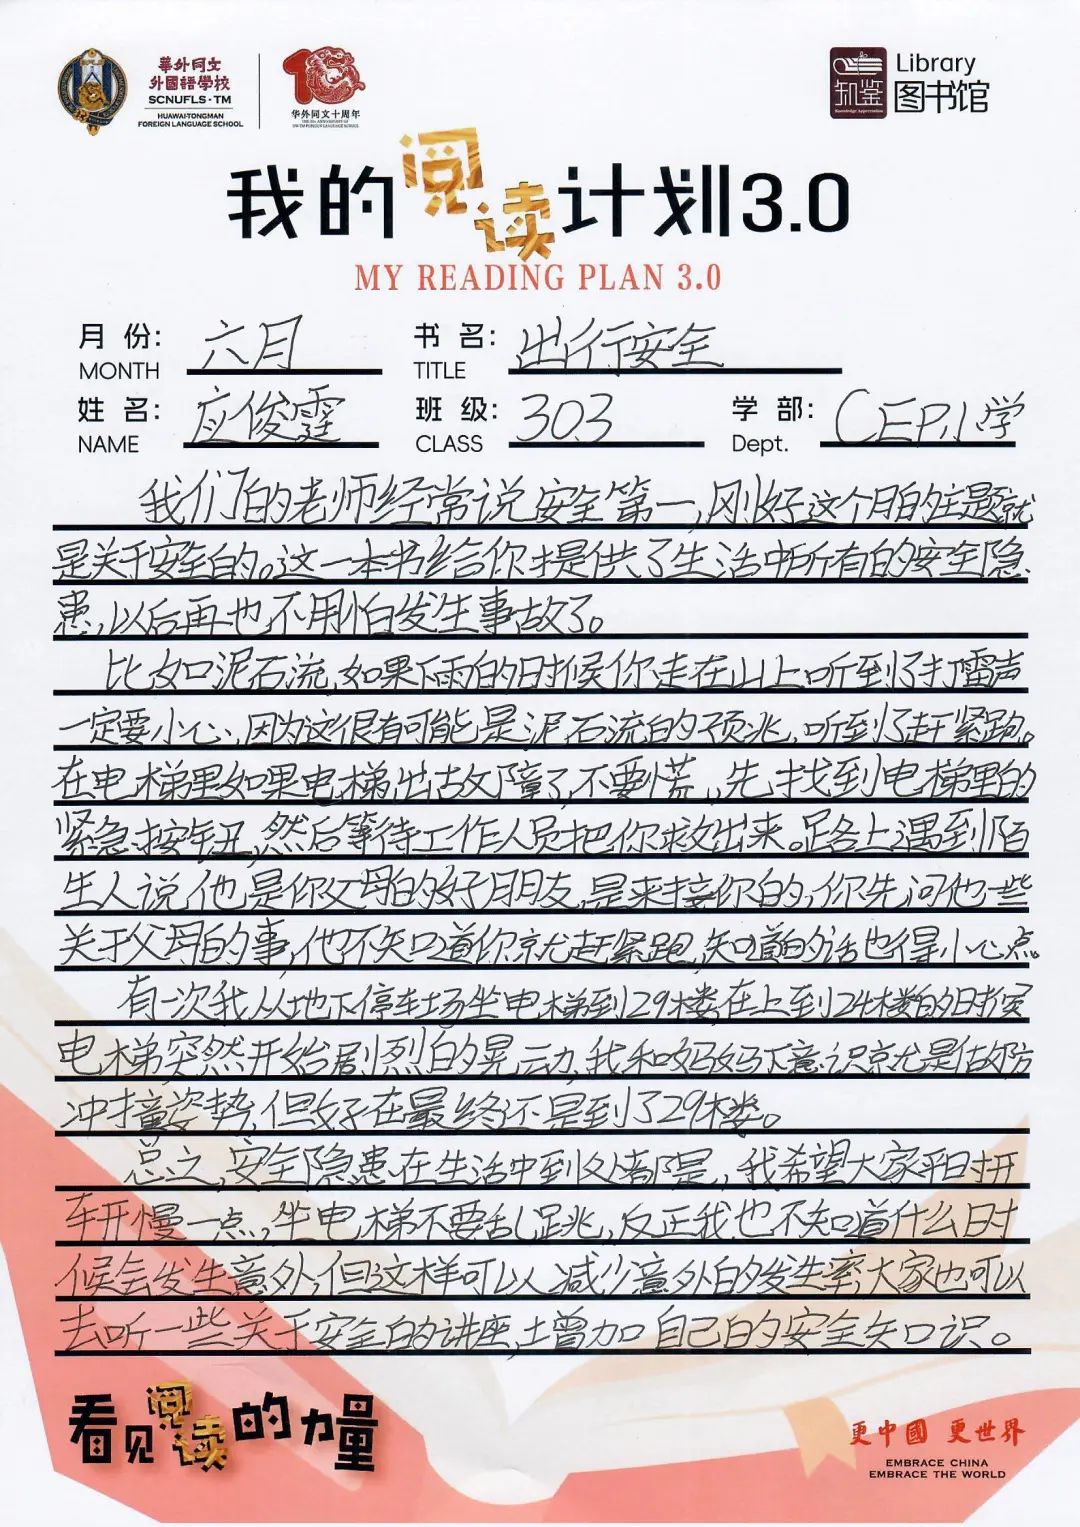 華外同文
外國語學校
SCNUFLS·TM
HUAWAI-TONGMAN
FOREIGN LANGUAGE SCHOOL
10
华外同文十周年
知鉴
Knowledge Appreciation
Library
图书馆
我的阅读计划3.0
MY READING PLAN 3.0
月份: 六月 书名: 出行安全
MONTH TITLE
姓名: 应俊霆 班级: 303 学部: CEP小学
NAME CLASS Dept.
我们的老师经常说安全第一,刚好这个月的主题就
是关于安全的。这一本书给你提供了生活中所有的安全隐
患,以后再也不用怕发生事故了。
比如泥石流,如果下雨的时候你走在山上听到了打雷声
一定要小心,因为这很有可能是泥石流的预兆,听到了赶紧跑。
在电梯里如果电梯出故障了,不要慌,先找到电梯里的
紧急按钮,然后等待工作人员把你救出来。路上遇到陌
生人说他是你父母的好朋友,是来接你的,你先问他一些
关于父母的事,他不知道你就赶紧跑,知道的话也得小心点。
有一次我从地下停车场坐电梯到29楼,在上到24楼的时候
电梯突然开始剧烈的晃动,我和妈妈下意识就是做好防
冲撞姿势,但好在最终还是到了29楼。
总之,安全隐患在生活中到处都是,我希望大家平时开
车开慢一点,坐电梯不要乱跳,反正我也不知道什么时
候会发生意外,但这样可以减少意外的发生率,大家也可以
去听一些关于安全的讲座,增加自己的安全知识。
看见阅读的力量
更中國 更世界
EMBRACE CHINA
EMBRACE THE WORLD